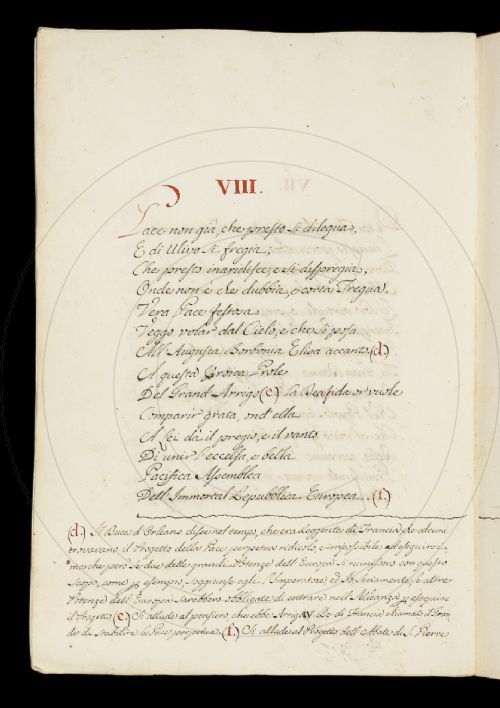 VIII.
Pace non già, che presto si dilegua,
E di Ulivo si fregia,
Che presto inaridisce, e si disspregia,
Onde non è che dubbia, e corta Tregua.
Vera Pace festosa
Veggo volar dal Cielo, e che si posa
All' Augusta Borbonia Elisa accanto, (d.)
A questa Eroica Prole
Del Grand' Arrigo (e.) la Dea fida or vuole
Comparir grata, ond' ella
A Lei dà il pregio, e il vanto
Di unir l'eccelsa, e bella
Pacifica Assemblea
Dell' Immortal Repubblica Europea. (f.)
(d.) Il Duca d'Orleans disse nel tempo, che era Reggente di Francia, che alcuni
trovavano il Progetto della Pace perpetua ridicolo, e impossibile ad eseguirsi,
ma che però se due delle grandi Potenze dell' Europa si riunissero con questo
Scopo, come p. esempio, soggiunse egli l'Imperatore, ed Io, certamente le altre
Potenze dell' Europa sarebbero obbligate di entrare nell' Alleanza p. eseguire
il Progetto. (e.) Si allude al pensiero, che ebbe Arrigo IV. Re di Francia chiamato il Gran-
de di stabilire la Pace perpetua. (f.) Si allude al Progetto dell' Abate di S. Pierre